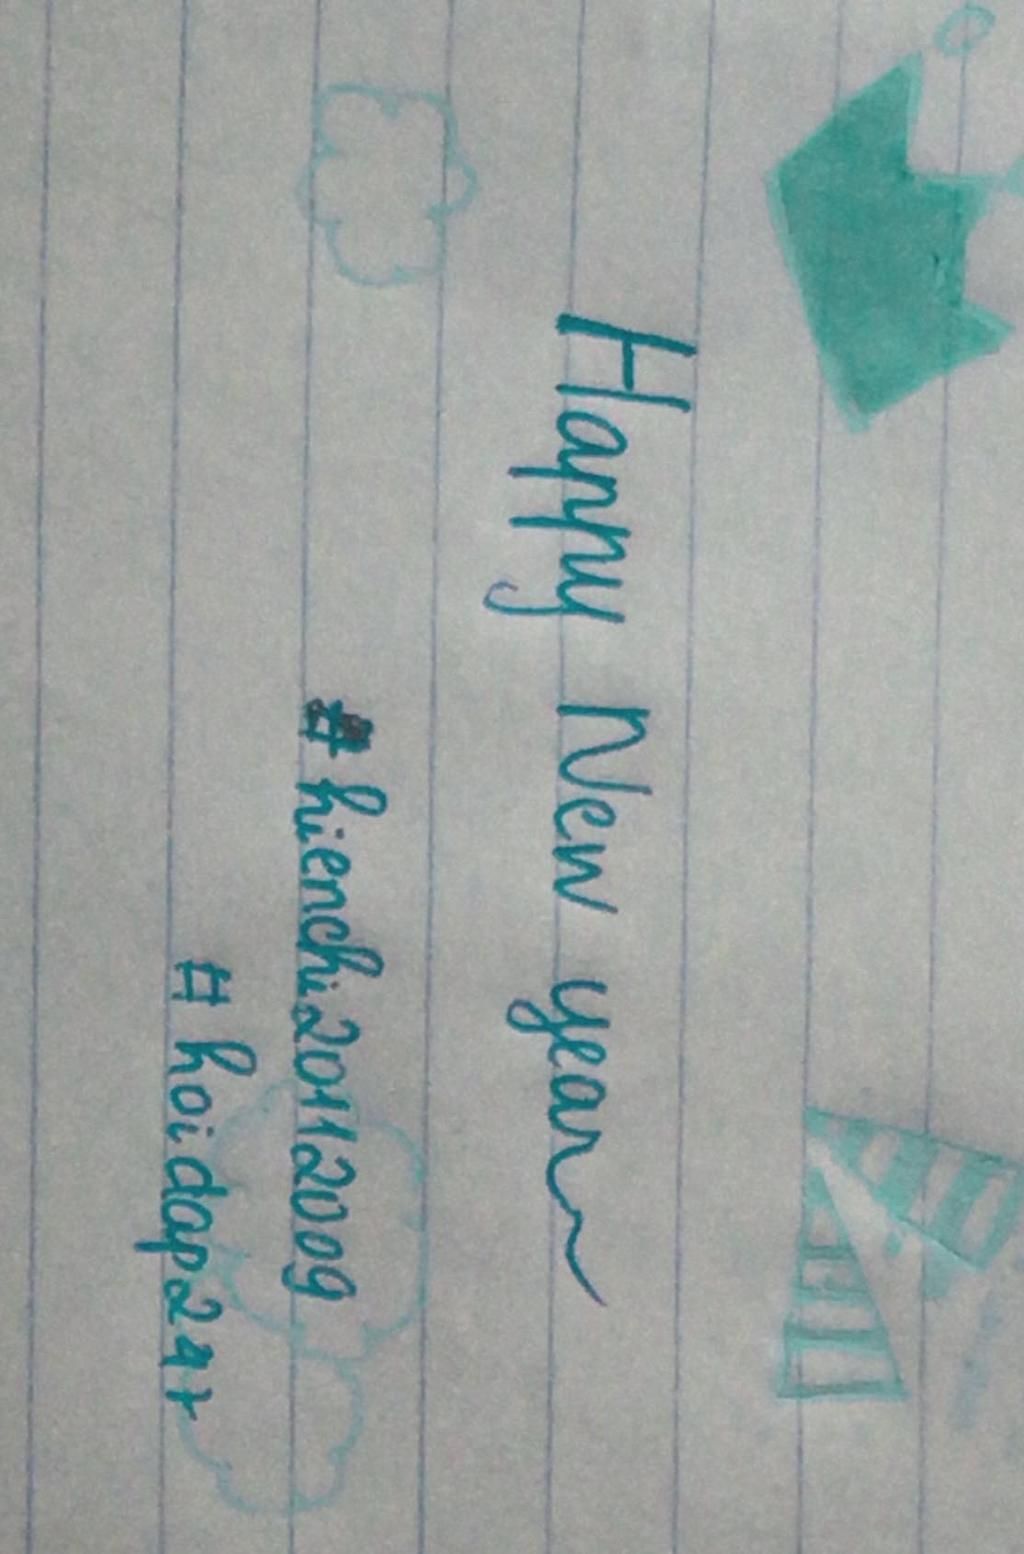 Happy New year
#hienchi20112009
#hoidap247